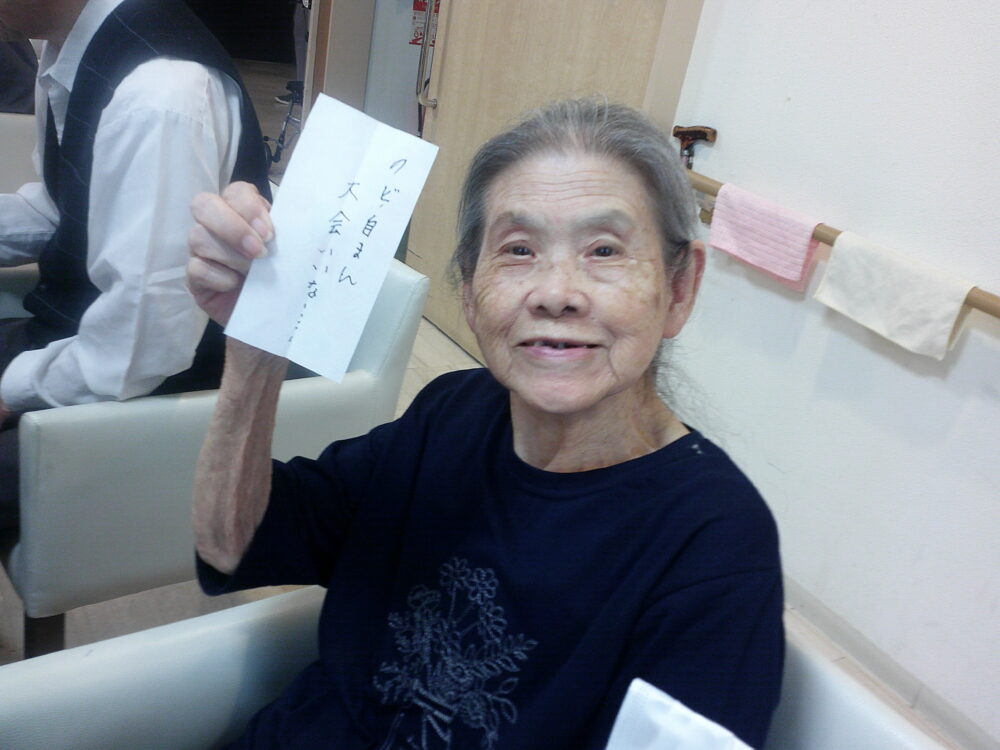 のど自まん
大会いいな……